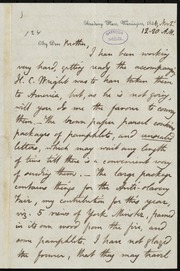 12.30 A.M.
124
My Dear
I have been working
very hard, getting ready the accompany
H. C. Wright was to have taken them
to America, but, as he is not going,
will you do me the favour to carry
them. – The brown paper parcel contains
packages of pamphlets, and unsealed
letters, which may wait any length
of time till there is a convenient way
of sending them. – The large package
contains things for the Anti-Slavery
Fair, my contribution for this year,
viz. 5 views of York Minster, framed
in its own wood from the fire, and
own pamphlets. I have not glazed
the former, that they may travel